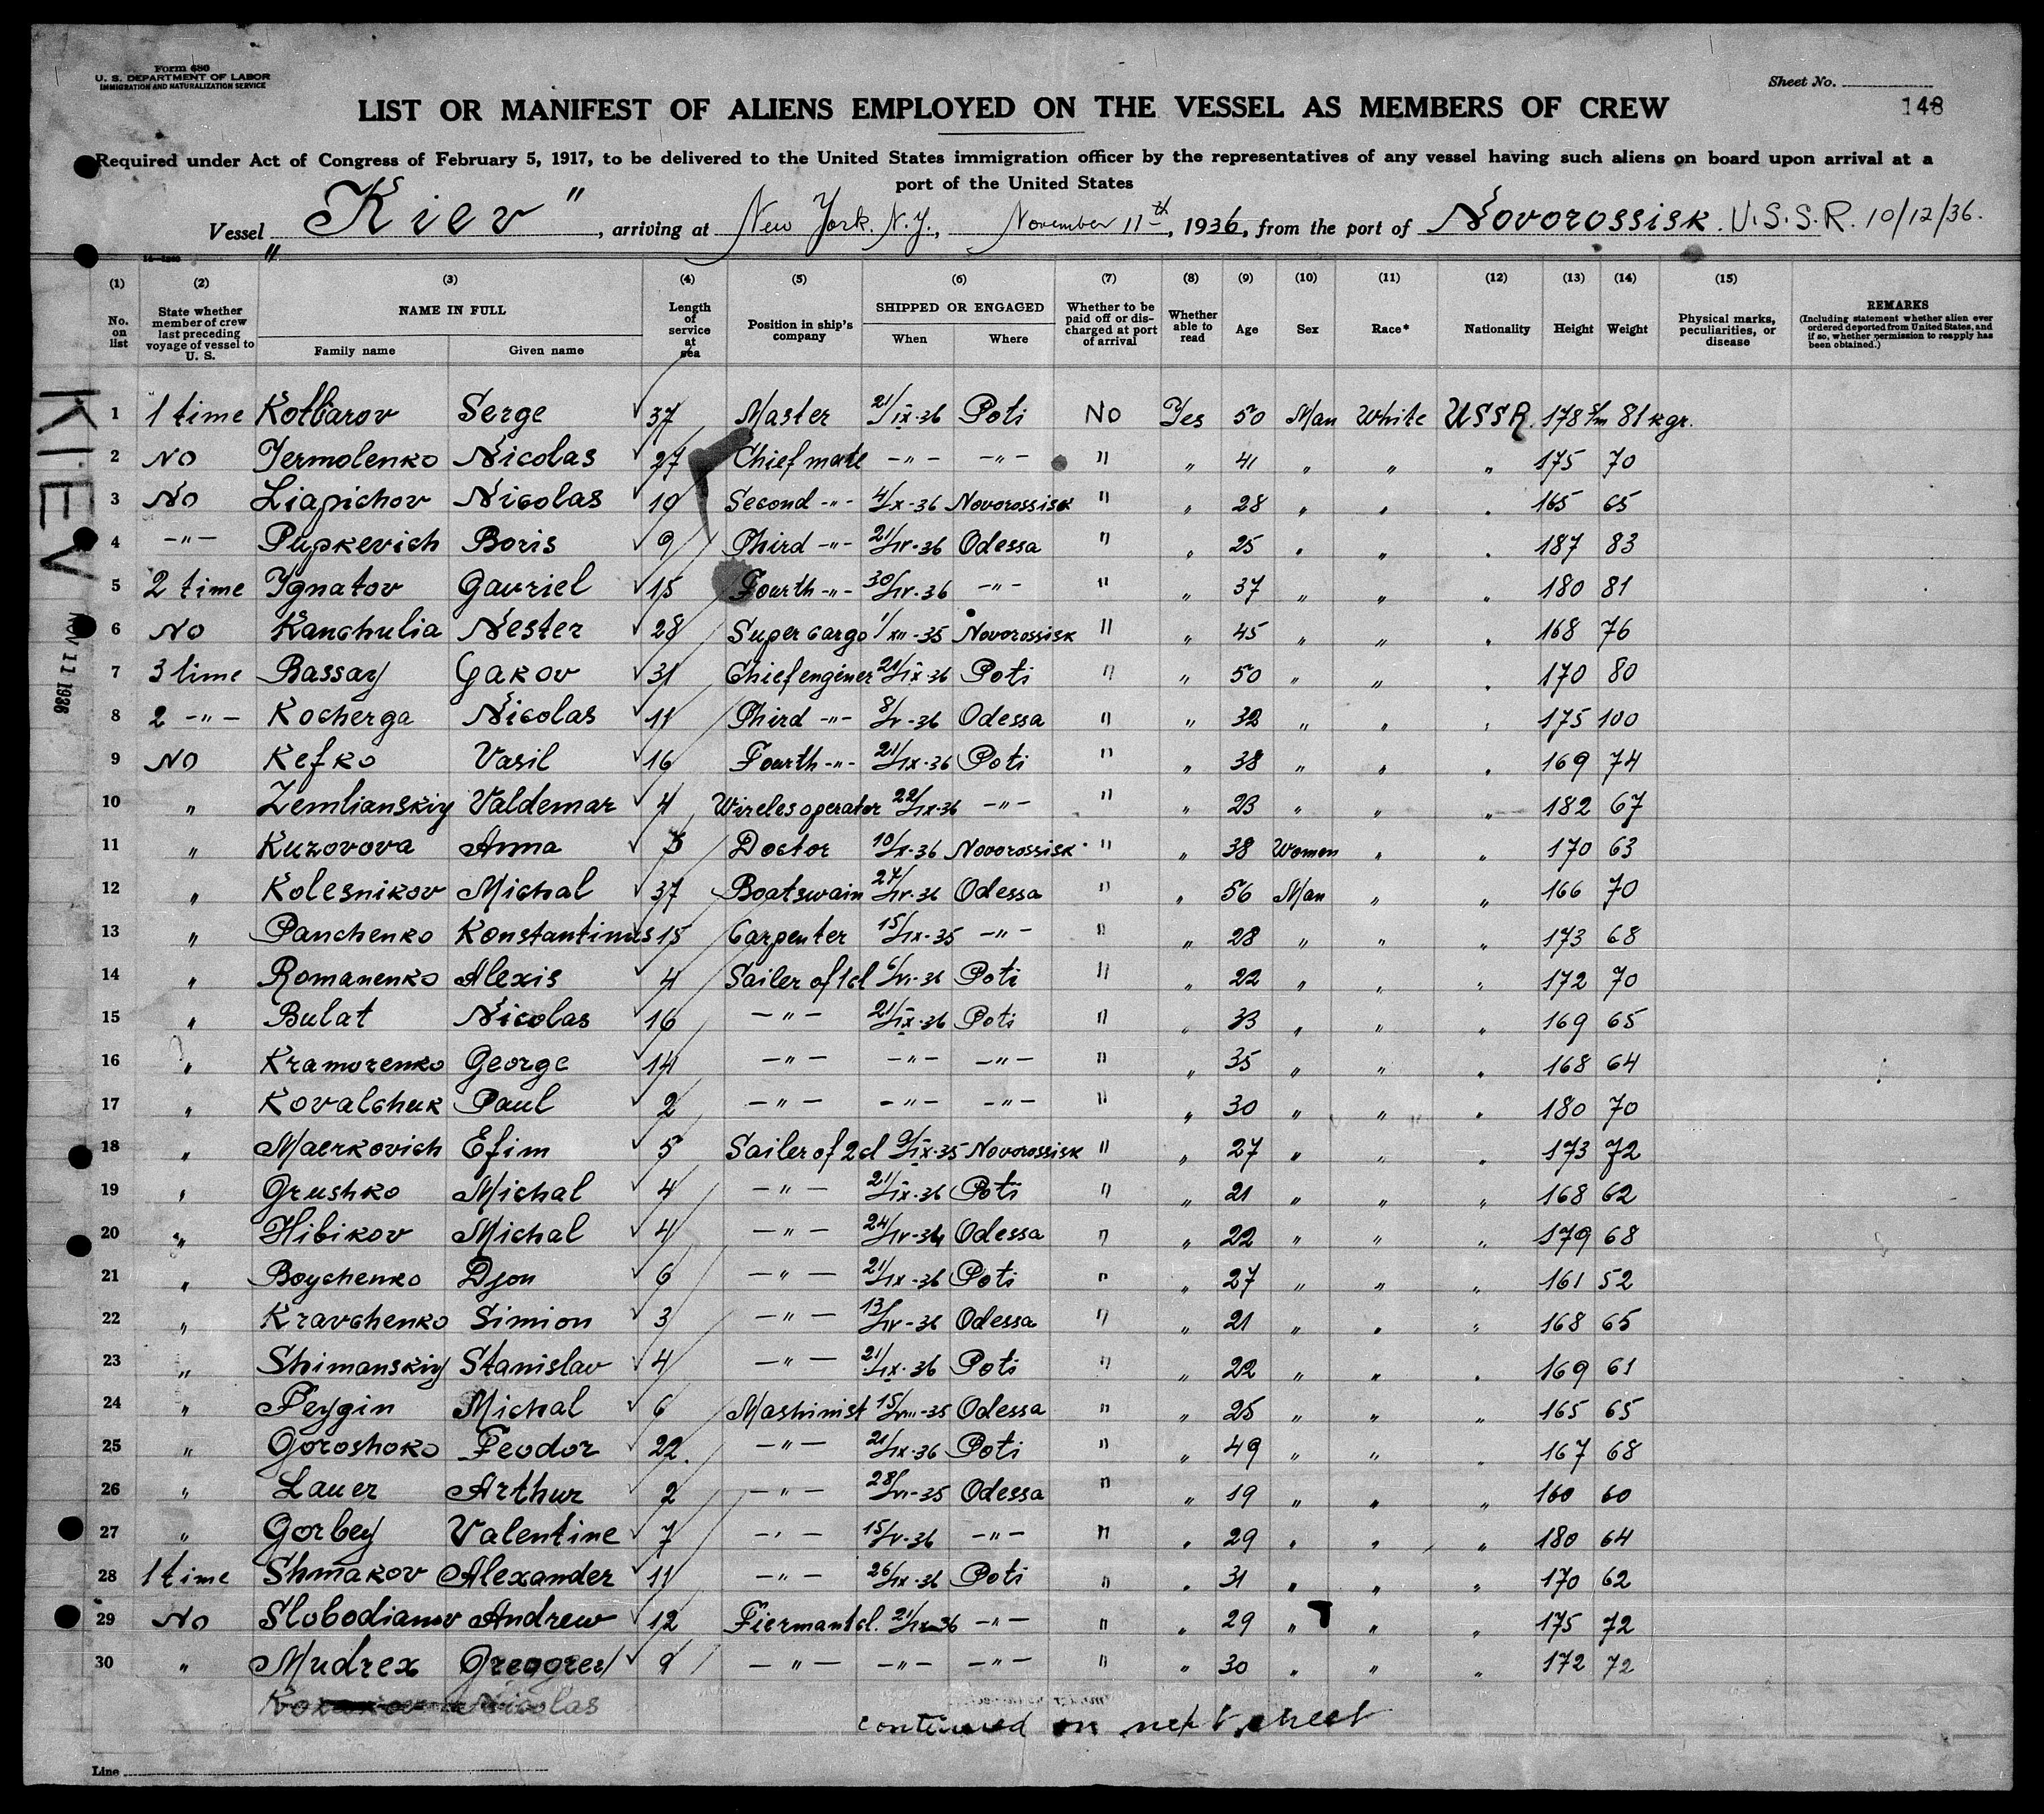 Form 680
U. S. DEPARTMENT OF LABOR
IMMIGRATION AND NATURALIZATION SERVICE
Sheet No.
148
LIST OR MANIFEST OF ALIENS EMPLOYED ON THE VESSEL AS MEMBERS OF CREW
Required under Act of Congress of February 5, 1917, to be delivered to the United States immigration officer by the representatives of any vessel having such aliens on board upon arrival at a
port of the United States
Vessel "Kiev", arriving at New York. N.Y., November 11th, 1936, from the port of Novorossisk. U.S.S.R. 10/12/36.
(1) (2) (3) (4) (5) (6) (7) (8) (9) (10) (11) (12) (13) (14) (15)
No. on list
State whether member of crew last preceding voyage of vessel to U. S.
NAME IN FULL
Family name Given name
Length of service at sea
Position in ship's company
SHIPPED OR ENGAGED
When Where
Whether to be paid off or discharged at port of arrival
Whether able to read
Age Sex Race* Nationality Height Weight
Physical marks, peculiarities, or disease
REMARKS
(Including statement whether alien ever ordered deported from United States, and if so, whether permission to reapply has been obtained.)
KIEV
NOV 11 1936
1 1 time Kotbarov Serge 37 Master 21/IX-36 Poti No Yes 50 Man White USSR. 178 s/m 81 kgr.
2 No Jermolenko Nicolas 27 Chief mate -"- -"- " " 41 " " " 175 70
3 No Liapichov Nicolas 10 Second -"- 4/X-36 Novorossisk " " 28 " " " 165 65
4 -"- Pupkevich Boris 9 Third -"- 21/IV-36 Odessa " " 25 " " " 187 83
5 2 time Ignatov Gavriel 15 Fourth -"- 30/IV-36 -"- " " 37 " " " 180 81
6 No Kanchulia Nester 28 Super cargo 1/XII-35 Novorossisk " " 45 " " " 168 76
7 3 time Bassay Gakov 31 Chief enginer 21/IX-36 Poti " " 50 " " " 170 80
8 2 -"- Kocherga Nicolas 11 Third -"- 8/V-36 Odessa " " 32 " " " 175 100
9 No Kefko Vasil 16 Fourth -"- 21/IX-36 Poti " " 38 " " " 169 74
10 " Zemlianskiy Valdemar 4 Wireles operator 22/IX-36 -"- " " 23 " " " 182 67
11 " Kuzovova Anna 3 Doctor 10/X-36 Novorossisk " " 38 Women " " 170 63
12 " Kolesnikov Michal 37 Boatswain 27/IV-36 Odessa " " 56 Man " " 166 70
13 " Panchenko Konstantinus 15 Carpenter 15/IX-35 -"- " " 28 " " " 173 68
14 " Romanenko Alexis 4 Sailer of 1cl 6/VI-36 Poti " " 22 " " " 172 70
15 " Bulat Nicolas 16 -"- 21/IX-36 Poti " " 33 " " " 169 65
16 " Kramorenko George 14 -"- -"- -"- " " 35 " " " 168 64
17 " Kovalchuk Paul 2 -"- -"- -"- " " 30 " " " 180 70
18 " Maerkovich Efim 5 Sailer of 2cl 9/IX-35 Novorossisk " " 27 " " " 173 72
19 " Grushko Michal 4 -"- 21/IX-36 Poti " " 21 " " " 168 62
20 " Hibikov Michal 4 -"- 24/IV-36 Odessa " " 22 " " " 179 68
21 " Boychenko Djon 6 -"- 21/IX-36 Poti " " 27 " " " 161 52
22 " Kravchenko Simion 3 -"- 13/IV-36 Odessa " " 21 " " " 168 65
23 " Shimanskiy Stanislav 4 -"- 21/IX-36 Poti " " 22 " " " 169 61
24 " Feygin Michal 6 Mashinist 15/VIII-35 Odessa " " 25 " " " 165 65
25 " Goroshoko Feodor 22. -"- 21/IX-36 Poti " " 49 " " " 167 68
26 " Lauer Arthur 2 -"- 28/VI-35 Odessa " " 19 " " " 160 60
27 " Gorbey Valentine 7 -"- 15/V-36 -"- " " 29 " " " 180 64
28 1 time Shmakov Alexander 11 -"- 26/IX-36 Poti " " 31 " " " 170 62
29 No Slobodianov Andrew 12 Fierman 1cl. 21/IX-36 -"- " " 29 " " " 175 72
30 " Mudrex Gregorey 9 -"- -"- -"- " " 30 " " " 172 72
Nicolas
continued on next sheet
Line